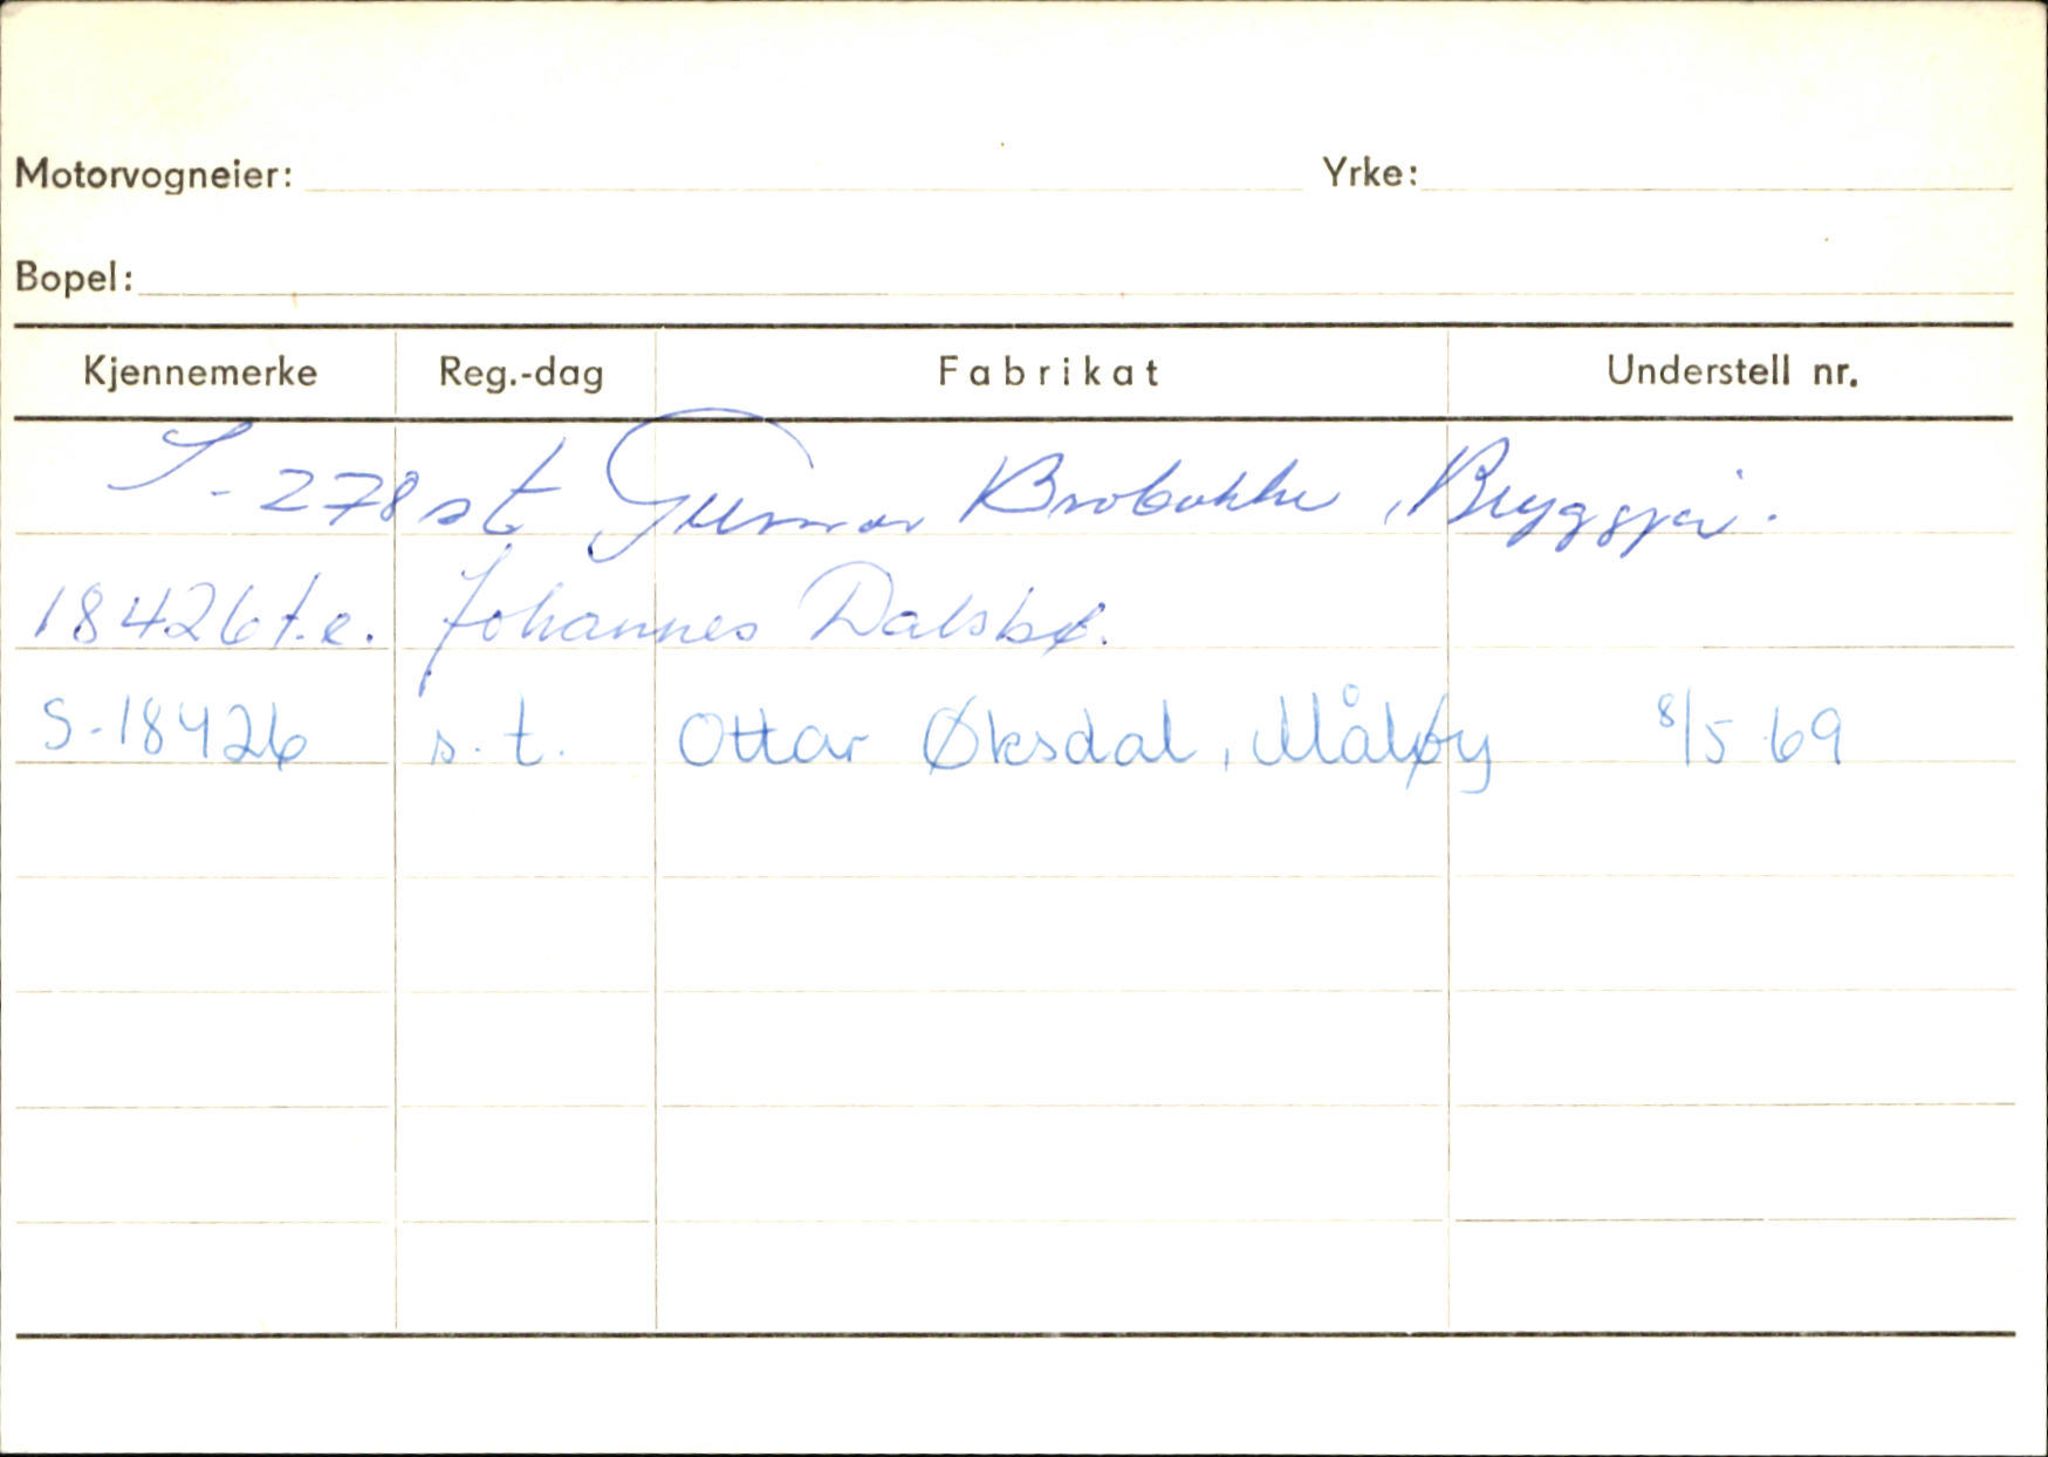 Motorvogneier: Yrke:
Bopel:
Kjennemerke Reg.-dag Fabrikat Understell nr.
S-278 st Gunnar Brobakke, Bryggja.
18426 t.e. Johannes Dalsbø.
S-18426 s.t. Ottar Øksdal, Måløy 8/5 69